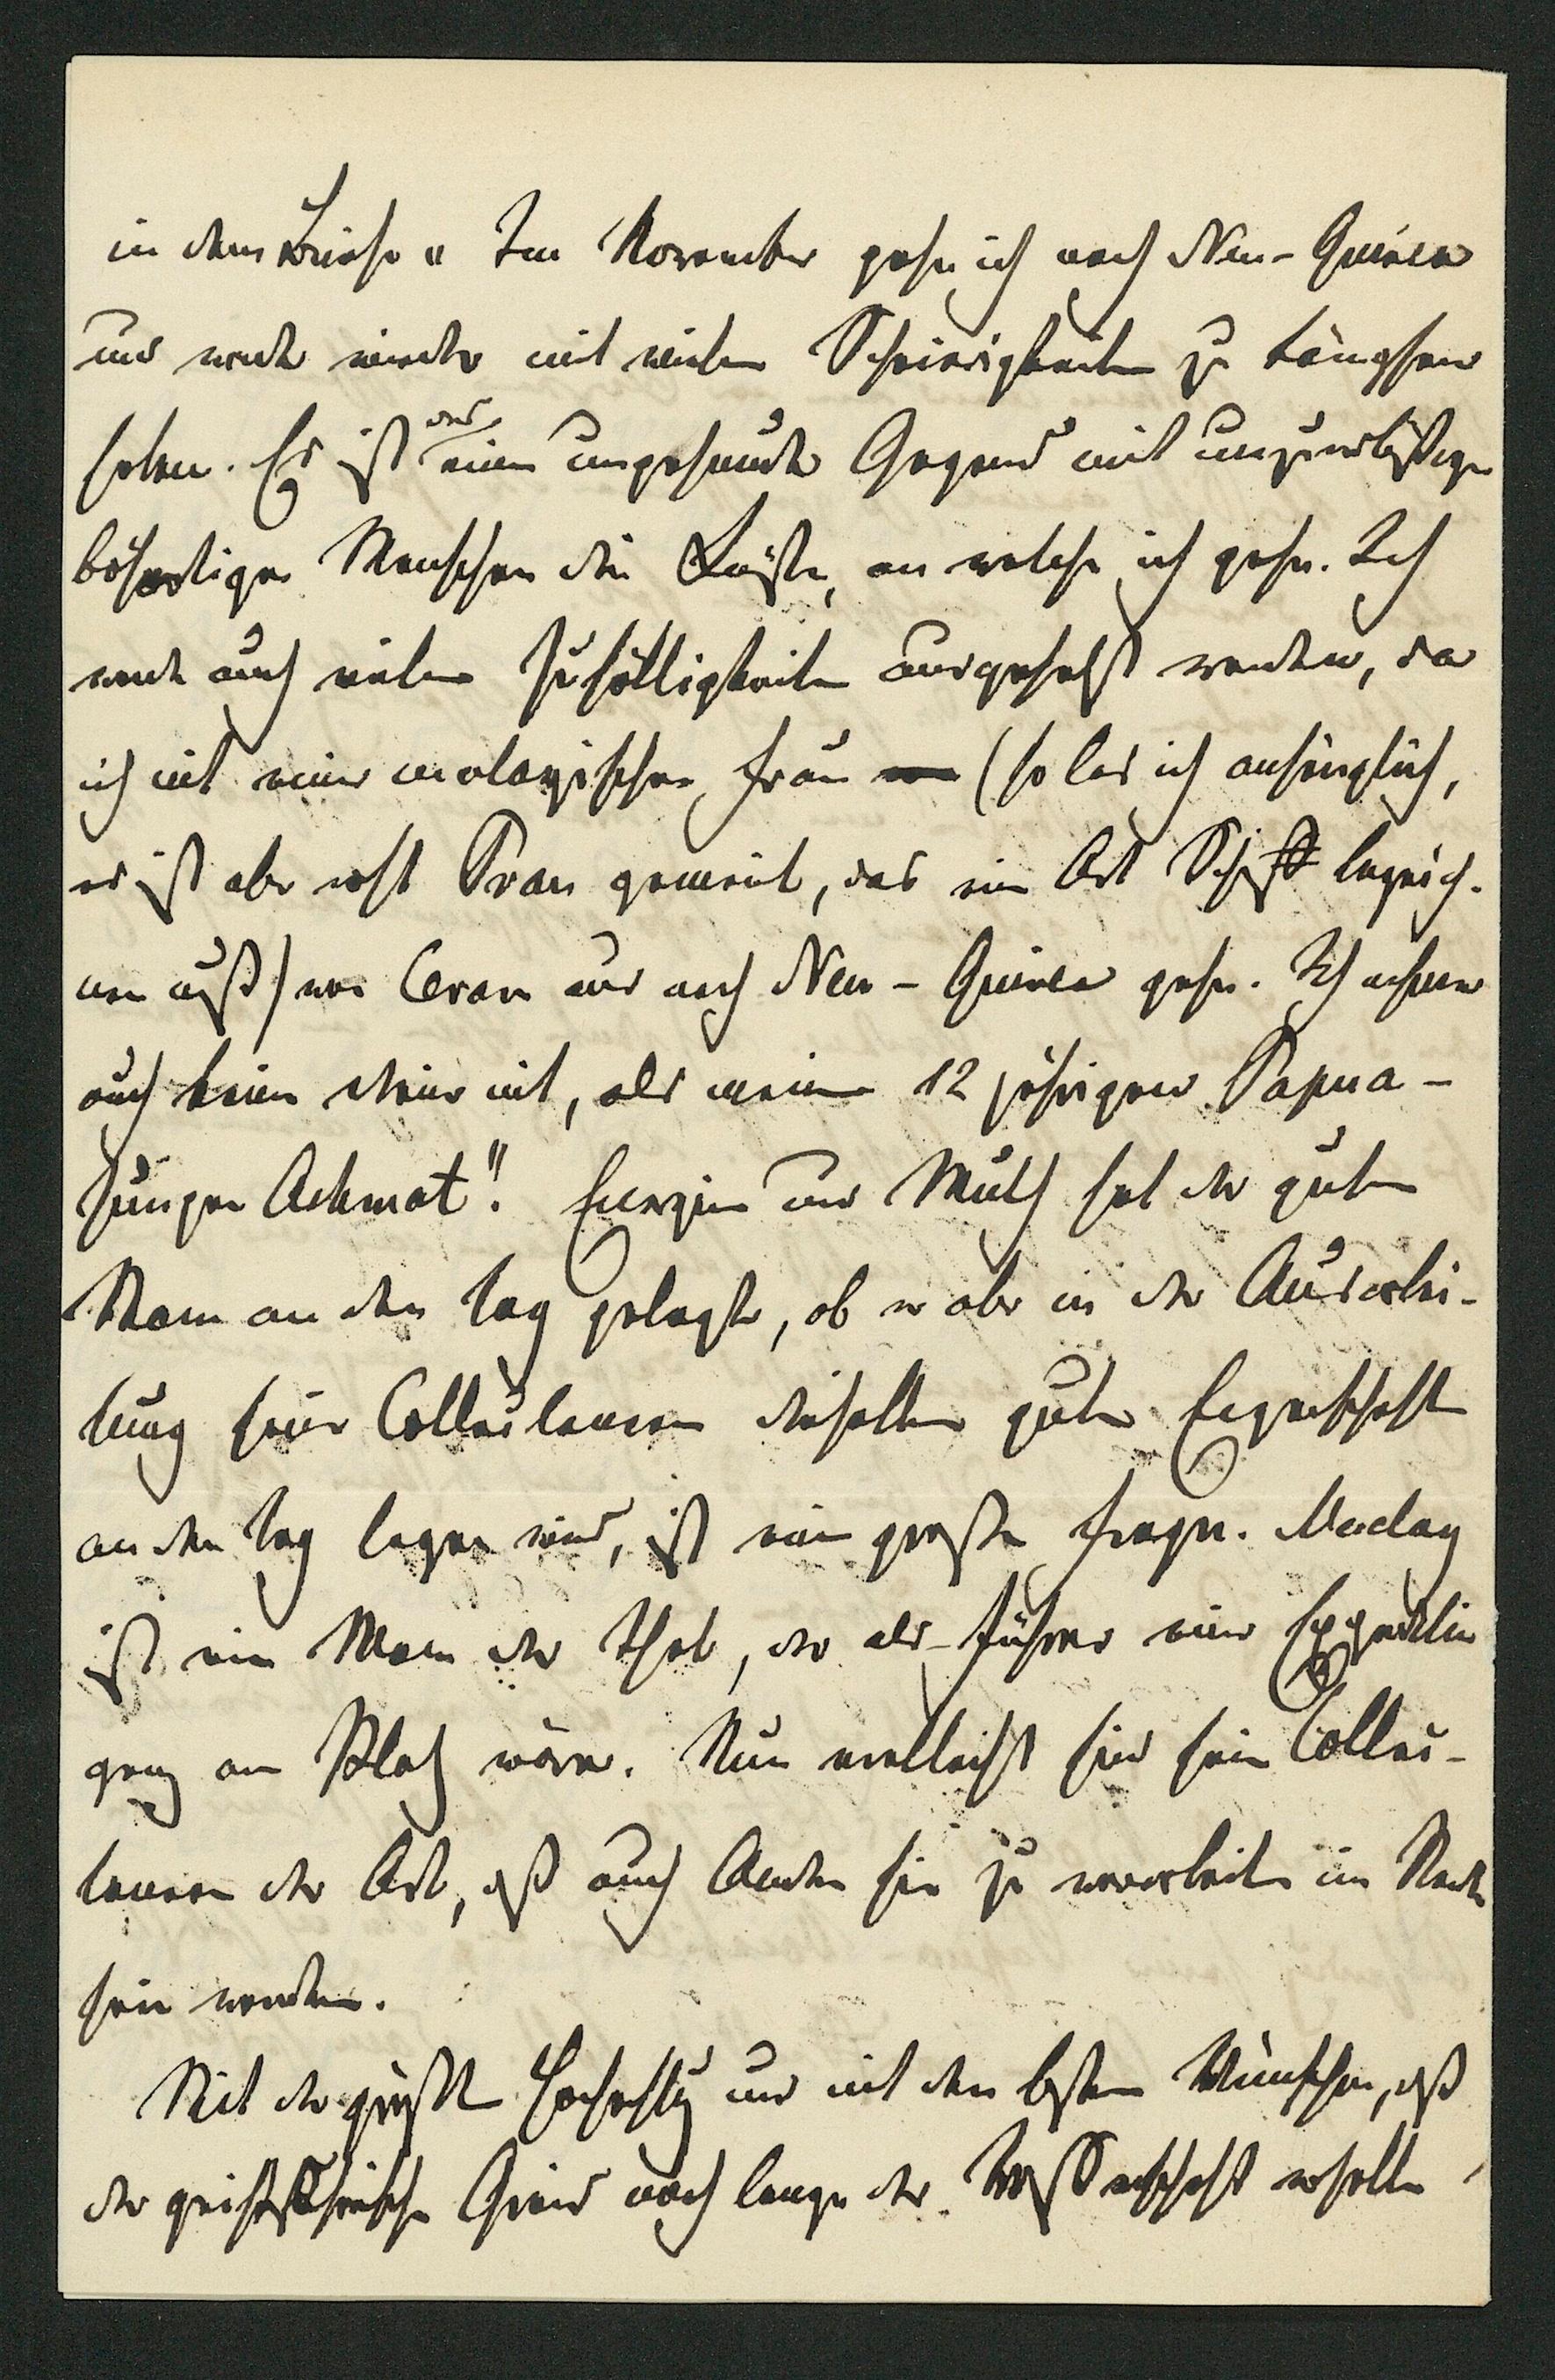 in dem Briefe „Im November gehe ich nach Neu-Guinea
und werde wieder mit vielen Schwierigkeiten zu kämpfen
haben. Es ist das eine ungesunde Gegend mit unzuverläßigen
bösartigen Menschen die Küste, an welche ich gehe. Ich
werde auch vielen Zufälligkeiten ausgesetzt werden, da
ich mit einer malayischen Frau (so las ich anfänglich,
es ist aber wohl Prau gemeint, das eine Art Schiff bezeich-
nen muß) von Ceram aus nach Neu-Guinea gehe. Ich nehme
auch keinen Diener mit, als meinen 12 jährigen Papua-
Jungen Achmat". Energie und Muth hat der gute
Mann an den Tag gelegt, ob er aber in der Ausarbei-
tung seiner Collectaneen dieselben guten Eigenschaften
an den Tag legen wird, ist eine große Frage. Maclay
ist ein Mann der That, der als Führer einer Expedition
ganz am Platz wäre. Nun vielleicht sind seine Collec-
taneen der Art, daß auch Andere sie zu verarbeiten im Stande
sein werden.
Mit der größten Hochachtung und mit den besten Wünschen, daß
der geistesfrische Greis noch lange der Wissenschaft erhalten